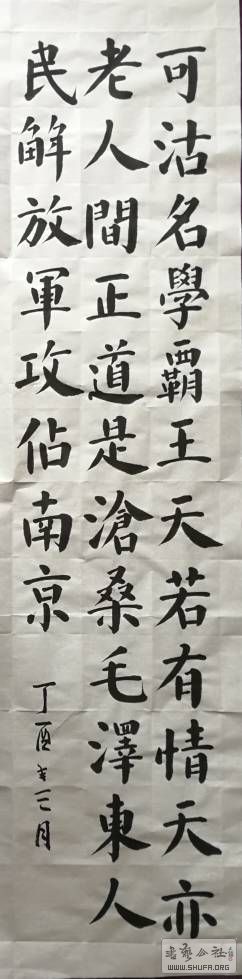 可沽名學覇王天若有情天亦
老人間正道是滄桑毛澤東人
民解放軍攻佔南京
丁酉年三月
WWW.SHUFA.ORG